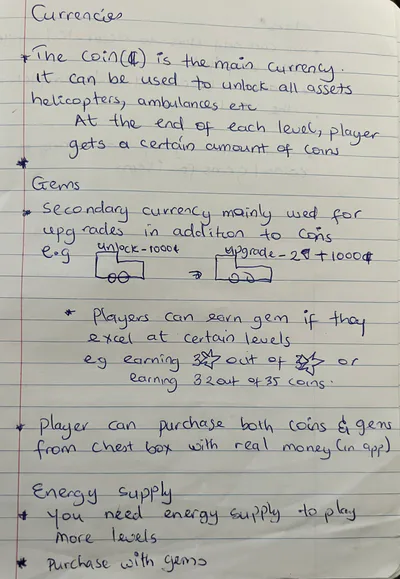 Currencies
* The coin(₵) is the main currency.
It can be used to unlock all assets
helicopters, ambulances etc
At the end of each level, player
gets a certain amount of coins
*
Gems
* secondary currency mainly used for
upgrades in addition to coins
e.g unlock-1000¢ upgrade - 2 + 1000¢
* Players can earn gem if they
excel at certain levels
eg earning 3☆ out of 3☆ or
earning 32 out of 35 coins.
* player can purchase both coins & gems
from chest box with real money (in app)
Energy supply
* You need energy supply to play
more levels
* purchase with gems